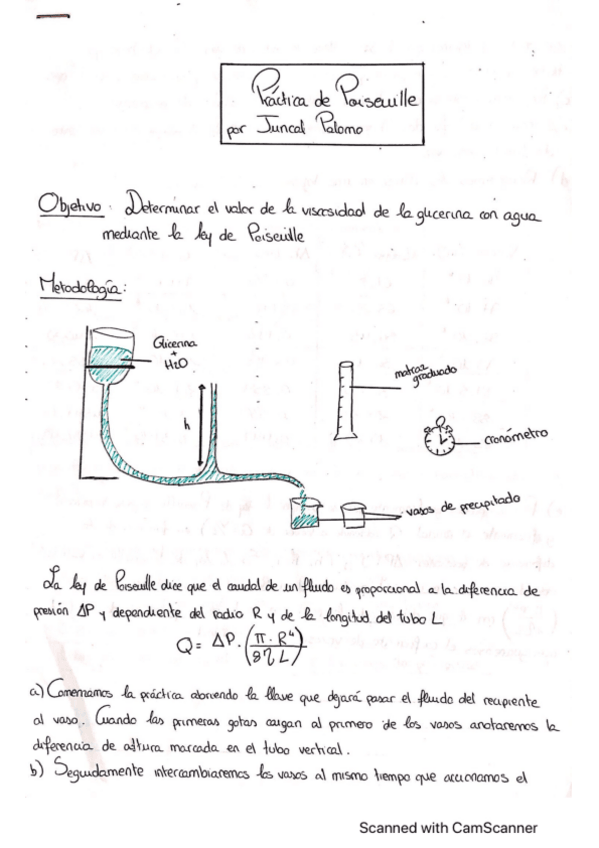 Práctica de Poiseuille
por Juncal Palomo
Objetivo: Determinar el valor de la viscosidad de la glicerina con agua
mediante la ley de Poiseuille
Metodología:
Glicerina
+
H2O
h
matraz
graduado
cronómetro
vasos de precipitado
La ley de Poiseuille dice que el caudal de un fluido es proporcional a la diferencia de
presión ΔP y dependiente del radio R y de la longitud del tubo L
Q = ΔP · (π · R⁴ / 8ηL)
a) Comenzamos la práctica abriendo la llave que dejará pasar el fluido del recipiente
al vaso. Cuando las primeras gotas caigan al primero de los vasos anotaremos la
diferencia de altura marcada en el tubo vertical.
b) Seguidamente intercambiaremos los vasos al mismo tiempo que accionamos el
Scanned with CamScanner